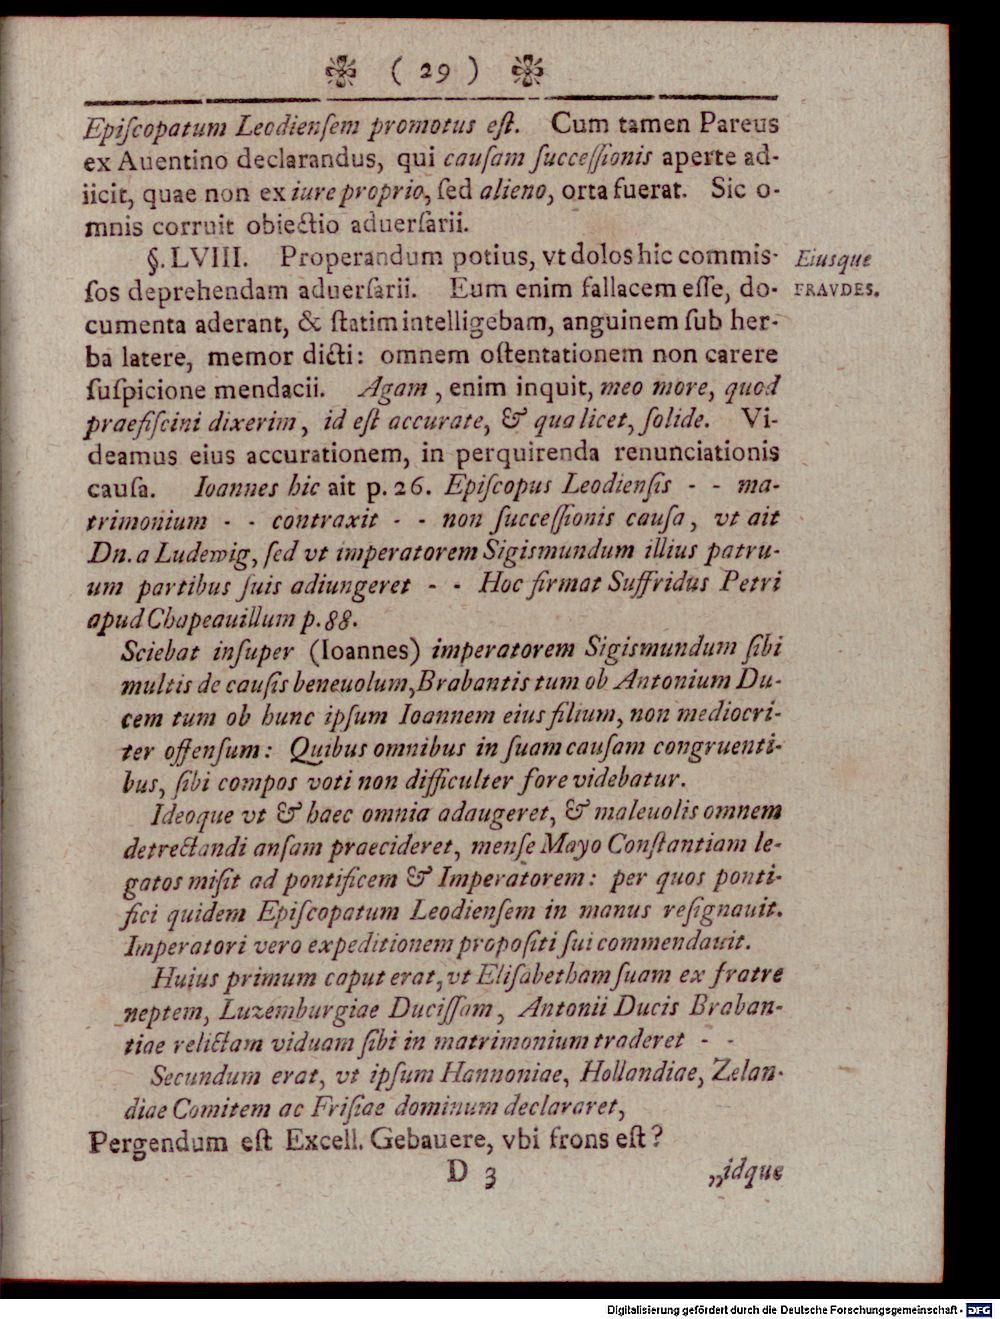 ( 29 )
Epiſcopatum Leodienſem promotus eſt. Cum tamen Pareus
ex Auentino declarandus, qui cauſam ſucceſſionis aperte ad-
iicit, quae non ex iure proprio, ſed alieno, orta fuerat. Sic o-
mnis corruit obiectio aduerſarii.
§. LVIII. Properandum potius, vt dolos hic commis-
ſos deprehendam aduerſarii. Eum enim fallacem eſſe, do-
cumenta aderant, & ſtatim intelligebam, anguinem ſub her-
ba latere, memor dicti: omnem oſtentationem non carere
ſuſpicione mendacii. Agam, enim inquit, meo more, quod
praefiſcini dixerim, id eſt accurate, & qua licet, ſolide. Vi-
deamus eius accurationem, in perquirenda renunciationis
cauſa. Ioannes hic ait p. 26. Epiſcopus Leodienſis - - ma-
trimonium - - contraxit - - non ſucceſſionis cauſa, vt ait
Dn. a Ludewig, ſed vt imperatorem Sigismundum illius patru-
um partibus ſuis adiungeret - - Hoc firmat Suffridus Petri
apud Chapeauillum p. 88.
Sciebat inſuper (Ioannes) imperatorem Sigismundum ſibi
multis de cauſis beneuolum, Brabantis tum ob Antonium Du-
cem tum ob hunc ipſum Ioannem eius filium, non mediocri-
ter offenſum: Quibus omnibus in ſuam cauſam congruenti-
bus, ſibi compos voti non difficulter fore videbatur.
Ideoque vt & haec omnia adaugeret, & maleuolis omnem
detrectandi anſam praecideret, menſe Mayo Conſtantiam le-
gatos miſit ad pontificem & Imperatorem: per quos ponti-
fici quidem Epiſcopatum Leodienſem in manus reſignauit.
Imperatori vero expeditionem propoſiti ſui commendauit.
Huius primum caput erat, vt Eliſabetham ſuam ex fratre
neptem, Luzemburgiae Duciſſam, Antonii Ducis Braban-
tiae relictam viduam ſibi in matrimonium traderet - -
Secundum erat, vt ipſum Hannoniae, Hollandiae, Zelan-
diae Comitem ac Friſiae dominum declararet,
Pergendum eſt Excell. Gebauere, vbi frons eſt?
D 3
„idque
Eiusque
FRAVDES.
Digitalisierung gefördert durch die Deutsche Forschungsgemeinschaft - DFG